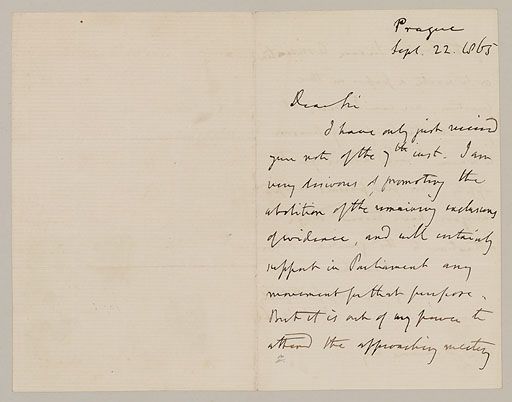 Prague
Sept. 22. 1865
Dear Sir
I have only just received
your note of the 7th inst. I am
very desirous of promoting the
abolition of the remaining exclusions
of evidence, and will certainly
support in Parliament any
movement for that purpose.
But it is out of my power to
attend the approaching meeting